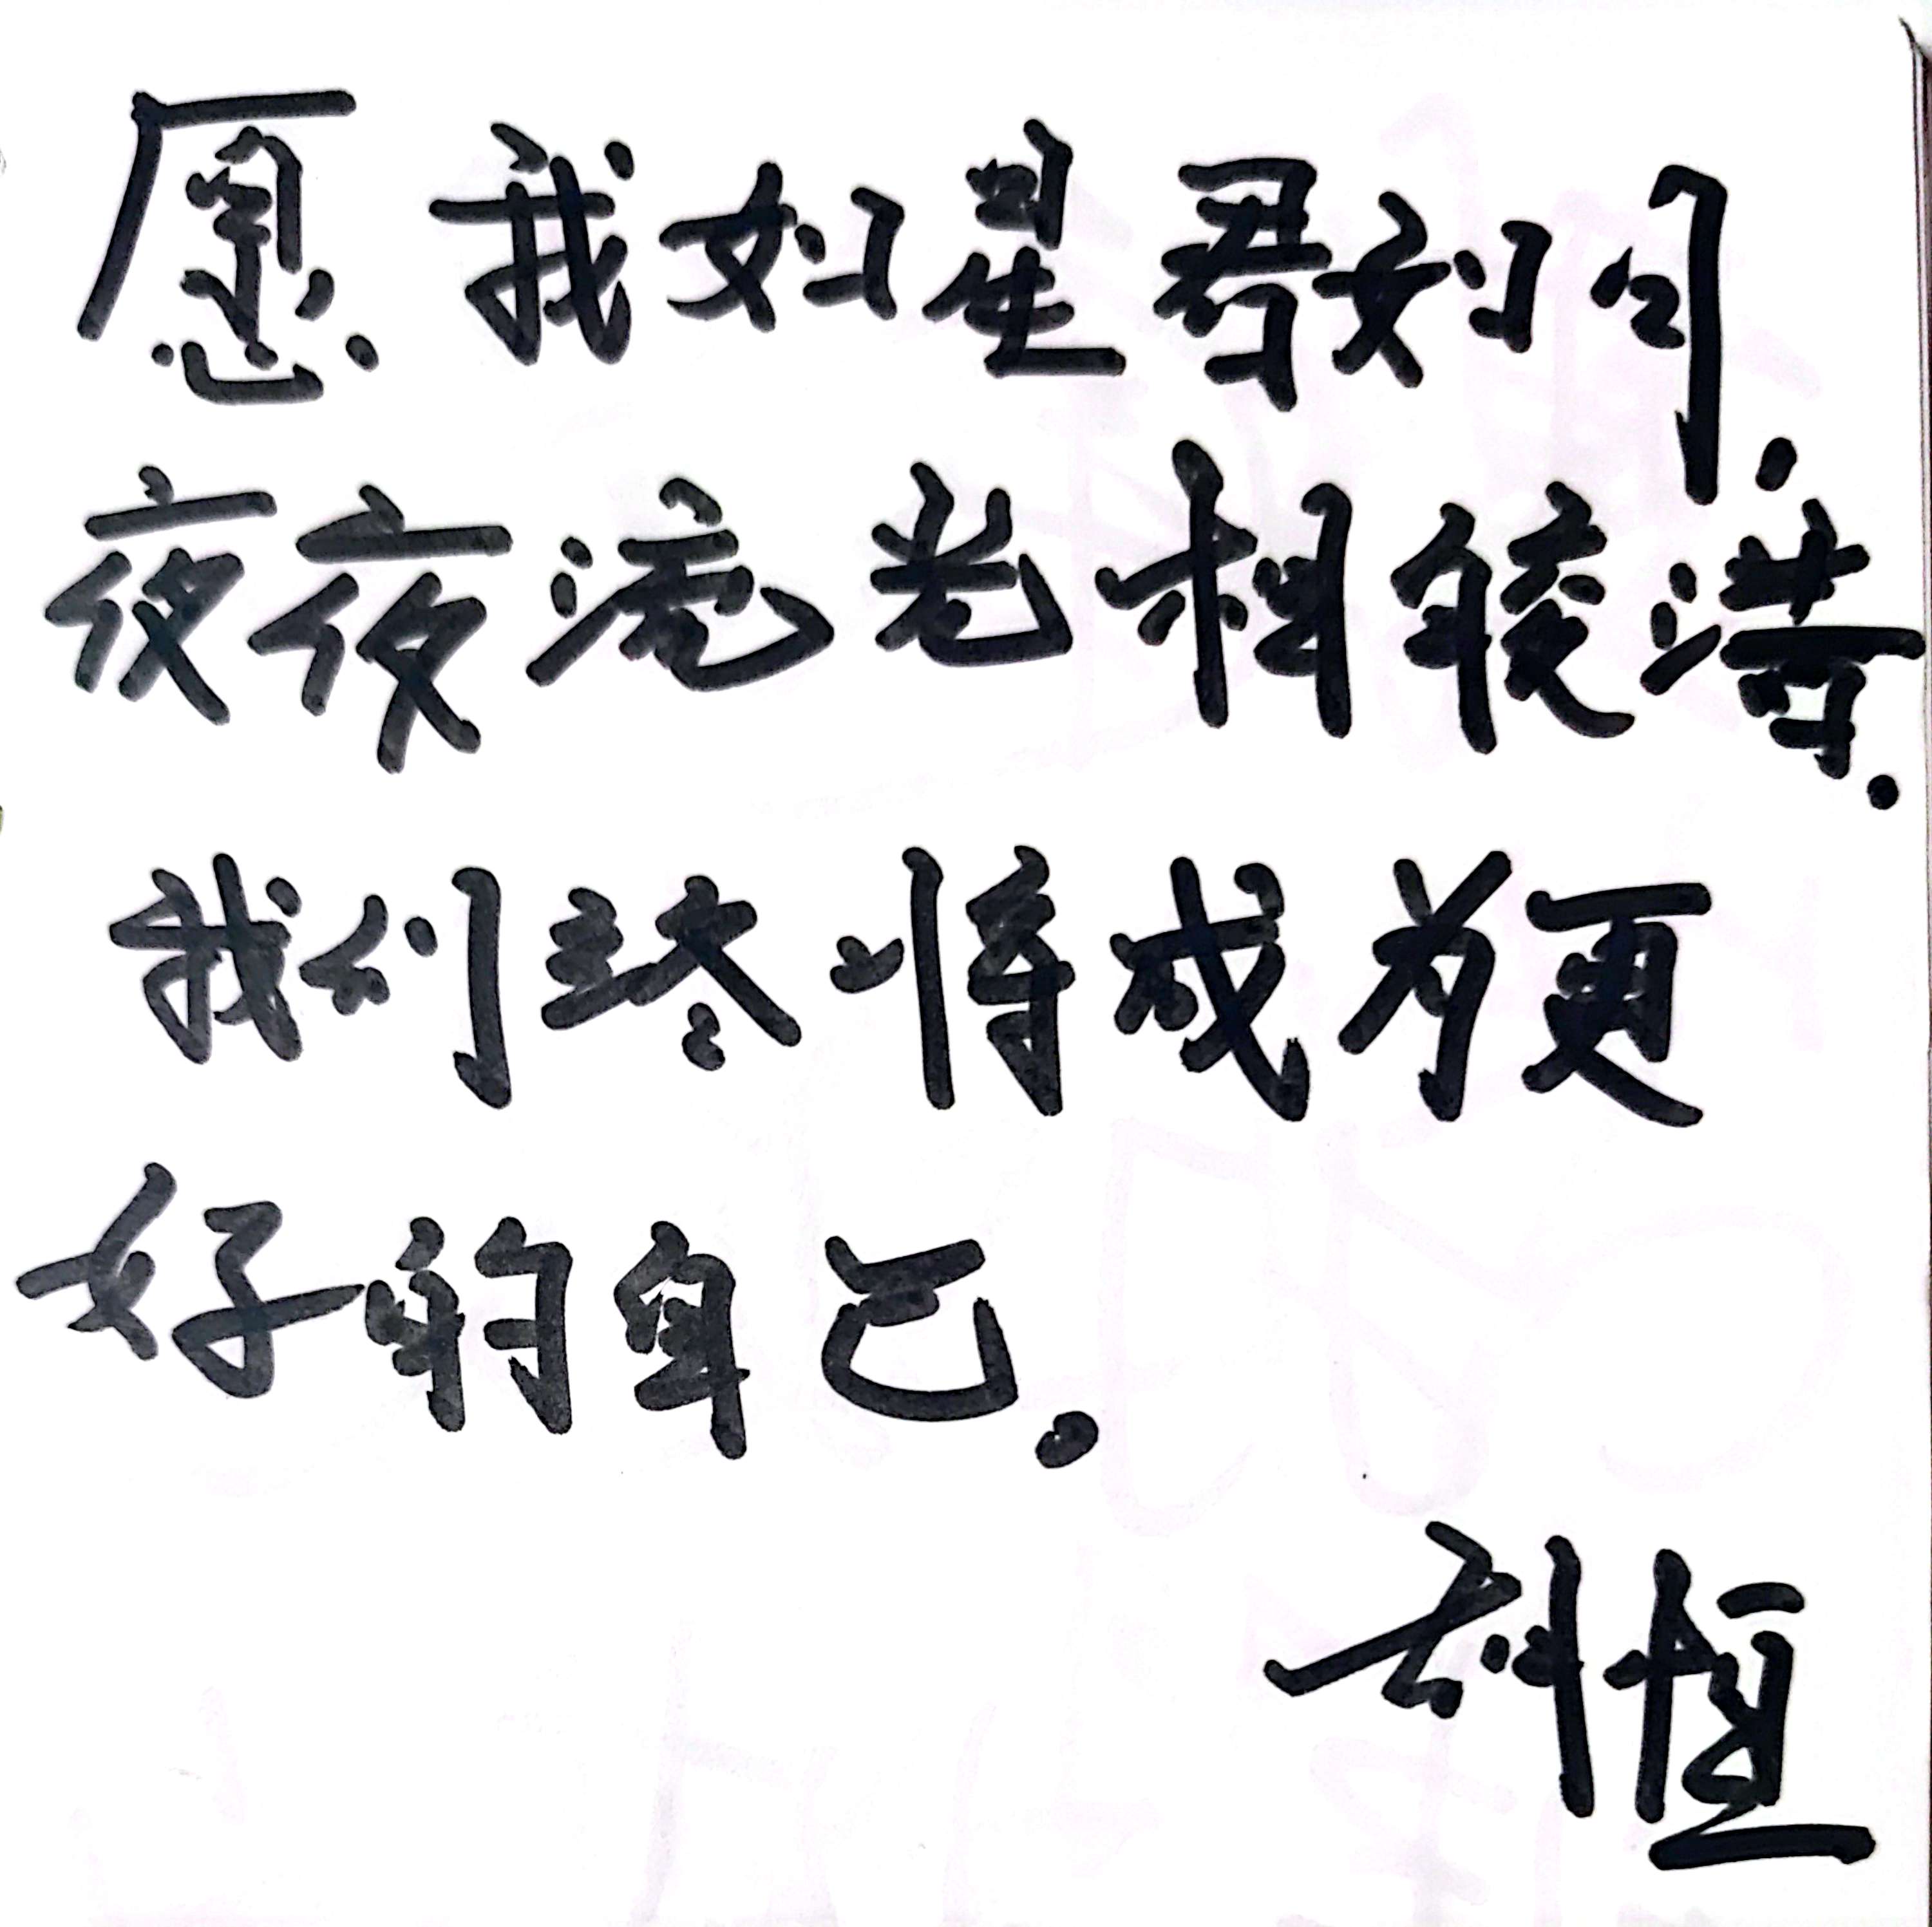 愿我如星君如月.
夜夜流光相皎洁.
我们终将成为更
好的自己.
恒